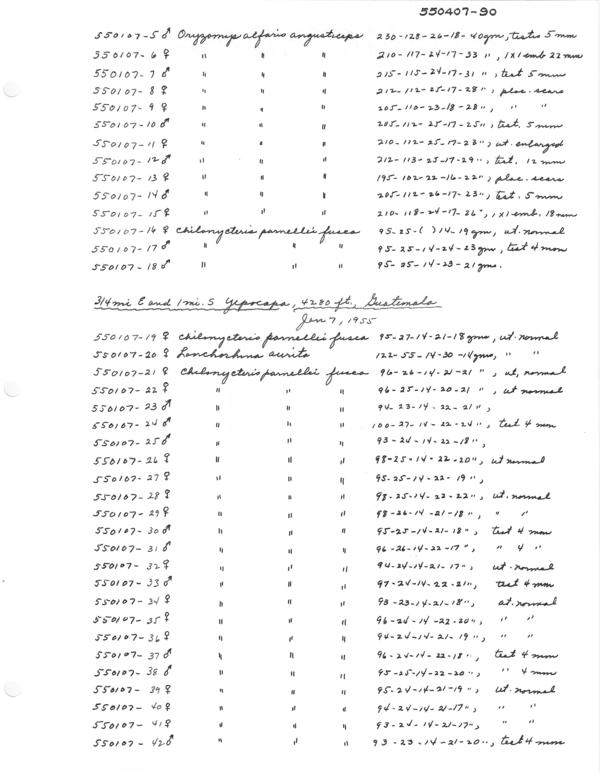 550407-90
550107-5♂ Oryzomys alfaroi angusticeps 230-128-26-18-40gm, testes 5mm
550107-6♀ " " " 210-117-24-17-33 ", 1x1 emb 22mm
550107-7♂ " " " 215-115-24-17-31 ", test 5mm
550107-8♀ " " " 212-112-25-17-28 ", plac. scars
550107-9♀ " " " 205-110-23-18-28 ", " "
550107-10♂ " " " 205-112-25-17-25 ", test. 5mm
550107-11♀ " " " 210-112-25-17-23 ", ut. enlarged
550107-12♂ " " " 212-113-25-17-29 ", test. 12mm
550107-13♀ " " " 195-102-22-16-22 ", plac. scars
550107-14♂ " " " 205-112-26-17-23 ", test. 5mm
550107-15♀ " " " 210-118-24-17-26 ", 1x1 emb. 18mm
550107-16♀ Chilonycteris parnellii fusca 95-25-( )14-19gm, ut. normal
550107-17♂ " " " 95-25-14-24-23gm, test 4mm
550107-18♂ " " " 95-25-14-23-21gms.
3/4 mi E and 1 mi. S Yepocapa, 4280 ft., Guatemala
Jan 7, 1955
550107-19♀ Chilonycteris parnellii fusca 95-27-14-21-18gms, ut. normal
550107-20♀ Lonchorhina aurita 122-55-14-30-14gms, " "
550107-21♀ Chilonycteris parnellii fusca 96-26-14-21-21 ", ut, normal
550107-22♀ " " " 96-25-14-20-21 ", ut normal
550107-23♂ " " " 94-23-14-22-21 ",
550107-24♂ " " " 100-27-14-22-24 ", test 4mm
550107-25♂ " " " 93-24-14-22-18 ",
550107-26♀ " " " 98-25-14-22-20 ", ut normal
550107-27♀ " " " 95-25-14-22-19 ",
550107-28♀ " " " 98-25-14-22-22 ", ut. normal
550107-29♀ " " " 98-26-14-21-18 ", " "
550107-30♂ " " " 95-25-14-21-18 ", test 4mm
550107-31♂ " " " 96-26-14-22-17 ", " 4 "
550107-32♀ " " " 94-24-14-21-17 ", ut. normal
550107-33♂ " " " 97-24-14-22-21 ", test 4mm
550107-34♀ " " " 93-23-14-21-18 ", ut. normal
550107-35♀ " " " 96-24-14-22-20 ", " "
550107-36♀ " " " 94-24-14-21-19 ", " "
550107-37♂ " " " 96-24-14-22-18 ", test 4mm
550107-38♂ " " " 95-25-14-22-20 ", " 4mm
550107-39♀ " " " 95-24-14-21-19 ", ut. normal
550107-40♀ " " " 94-24-14-21-17 ", " "
550107-41♀ " " " 93-24-14-21-17 ", " "
550107-42♂ " " " 93-23-14-21-20 ", test 4mm